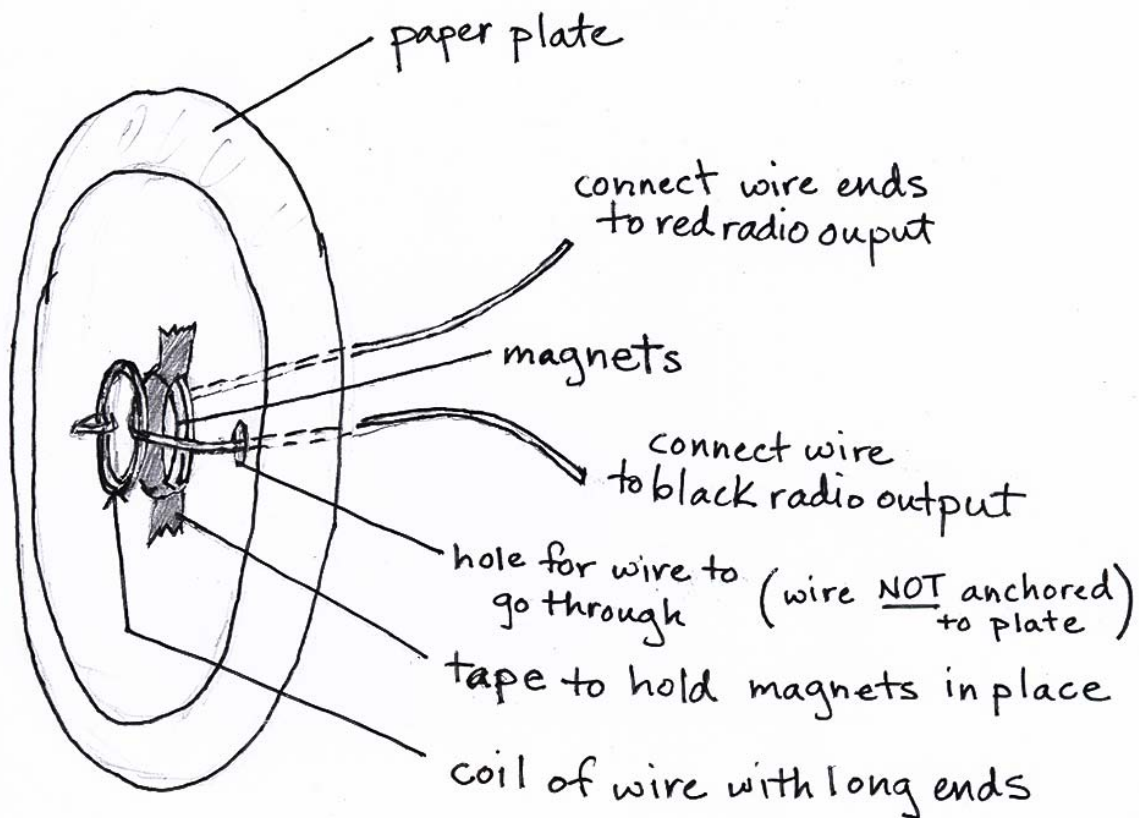 paper plate
connect wire ends
to red radio ouput
magnets
connect wire
to black radio output
hole for wire to
go through
(wire NOT anchored
to plate)
tape to hold magnets in place
coil of wire with long ends